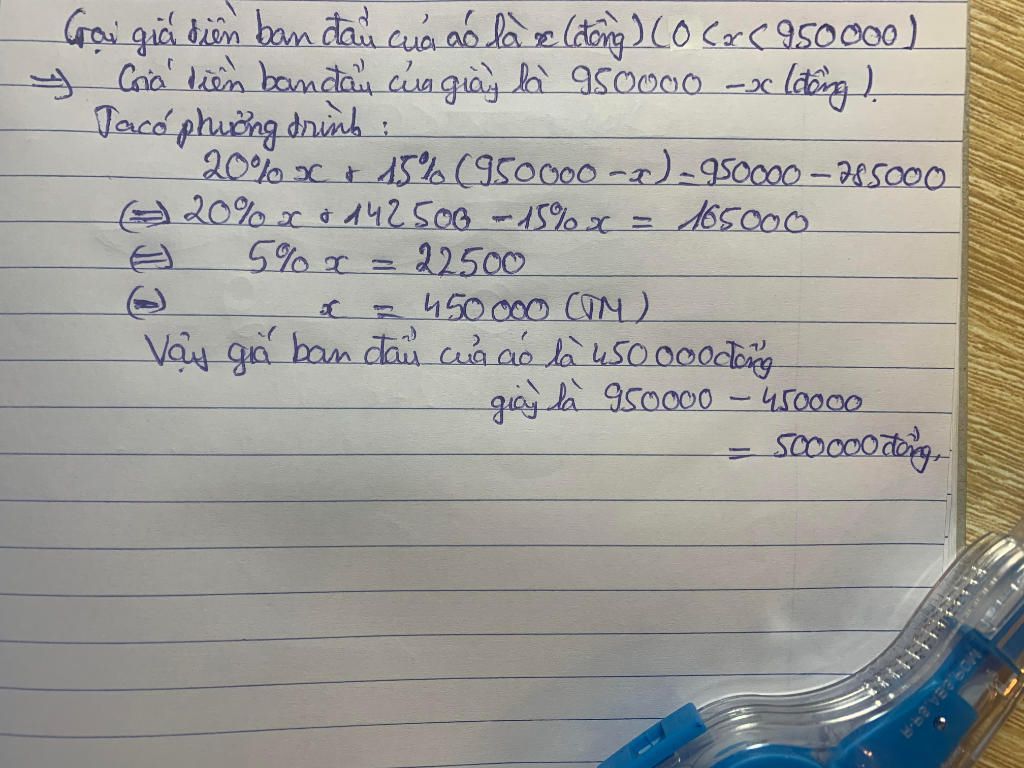 Gọi giá tiền ban đầu của áo là x (đồng) (0 < x < 950000)
=> Giá tiền ban đầu của giày là 950000 - x (đồng).
Ta có phương trình :
20% x + 15% (950000 - x) = 950000 - 785000
<=> 20% x + 142500 - 15% x = 165000
<=> 5% x = 22500
<=> x = 450000 (TM)
Vậy giá ban đầu của áo là 450000 đồng
giày là 950000 - 450000
= 500000 đồng.